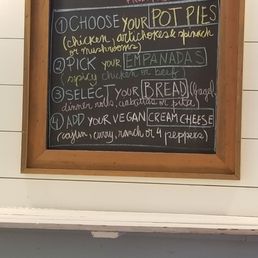 ① CHOOSE YOUR POT PIES
(chicken, artichokes & spinach
or mushrooms)
② PICK your EMPANADAS
spicy chicken or beef)
③ SELECT YOUR BREAD (bagel,
dinner rolls, ciabattas or pita)
④ ADD YOUR VEGAN CREAM CHEESE
(cajun, curry, ranch or 4 peppers)